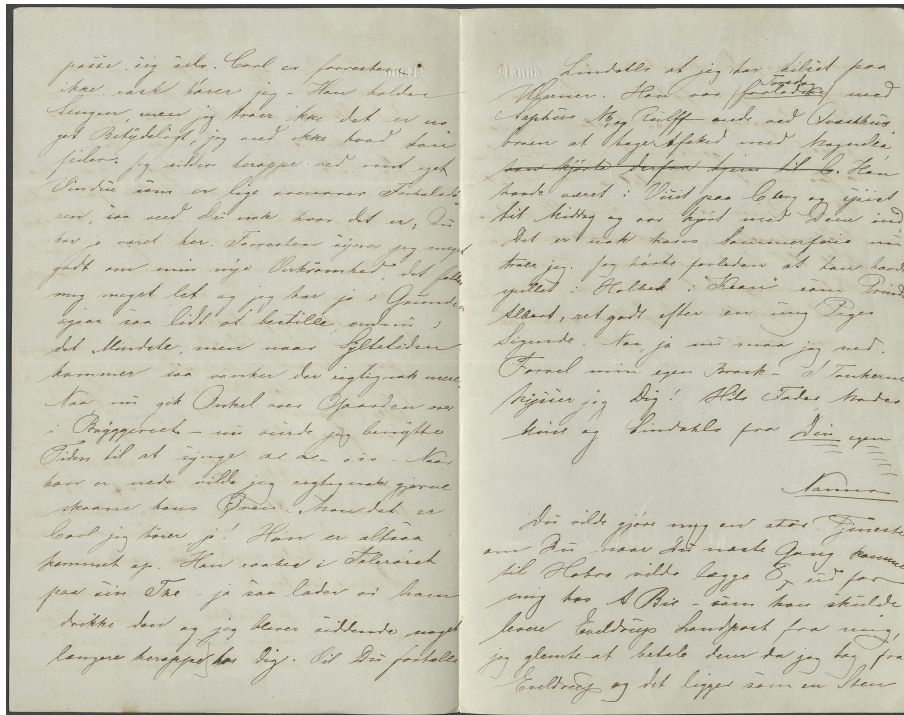 passe sig selv. Carl er forresten
ikke rask hører jeg – Han holder
Sengen, men jeg troer ikke det er no
get Betydeligt, jeg veed ikke hvad han
feiler. Jeg sidder heroppe ved mit eget
Vindue som er lige ovenover Forhalsdø
ren, saa veed Du nok hvor det er; Du
har jo været her. Forresten synes jeg meget
godt om min nye Virksomhed, det falder
mig meget let og jeg har jo i Grunden
ogsaa saa lidt at bestille, undtagen i
det Mindste, men naar Syltetiden
kommer saa vanker der rigtignok mere
Naa nu gik Onkel over Gaarden over
i Bryggeriet – nu burde jeg benytte
Tiden til at synge – Naar
han er nede vilde jeg rigtignok gjerne
skaane hans Øren. Men det er
Carl jeg hører jo! Han er altsaa
kommet op. Han venter i
paa sin The – ja saa lader vi ham
drikke den og jeg bliver siddende noget
længere heroppe hos Dig. Vil Du fortælle
Nanna
Lindahls at jeg har hilset paa
Han var Torsdag med
og Rulff ude ved
at tage afsked med
han kjørte derfra hjem til C. Han
havde været i Visit paa Cberg og spiist
til Middag og var kjørt med Dem ind
Det er nok hans Sommerferie nu
troer jeg. Jeg hørte forleden at han havde
spillet i Holbek i "Kean" som Prinds
Albert, ret godt efter en ung Piges
Sigende. Naa, ja nu maa jeg ned.
Farvel min egen – I Tankerne
kysser jeg Dig! Hils Fader Moder
og Lindahls fra Din egen
Nanna
Du vilde gjøre mig en stor Tjeneste
om Du naar Du næste Gang kommer
til Hobro vilde lægge ud for
mig hos A Bie – som han skulde
levere Landpost fra mig,
jeg glemte at betale dem da jeg tog fra
og det ligger som en Steen